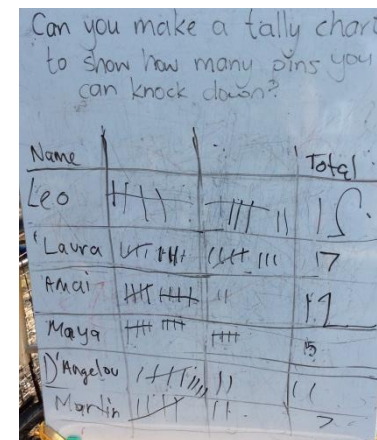 Can you make a tally chart
to show how many pins you
can knock down?
Name Total
Leo
Laura 17
Amai 12
Maya 15
D'Angelou 11
Martin 7